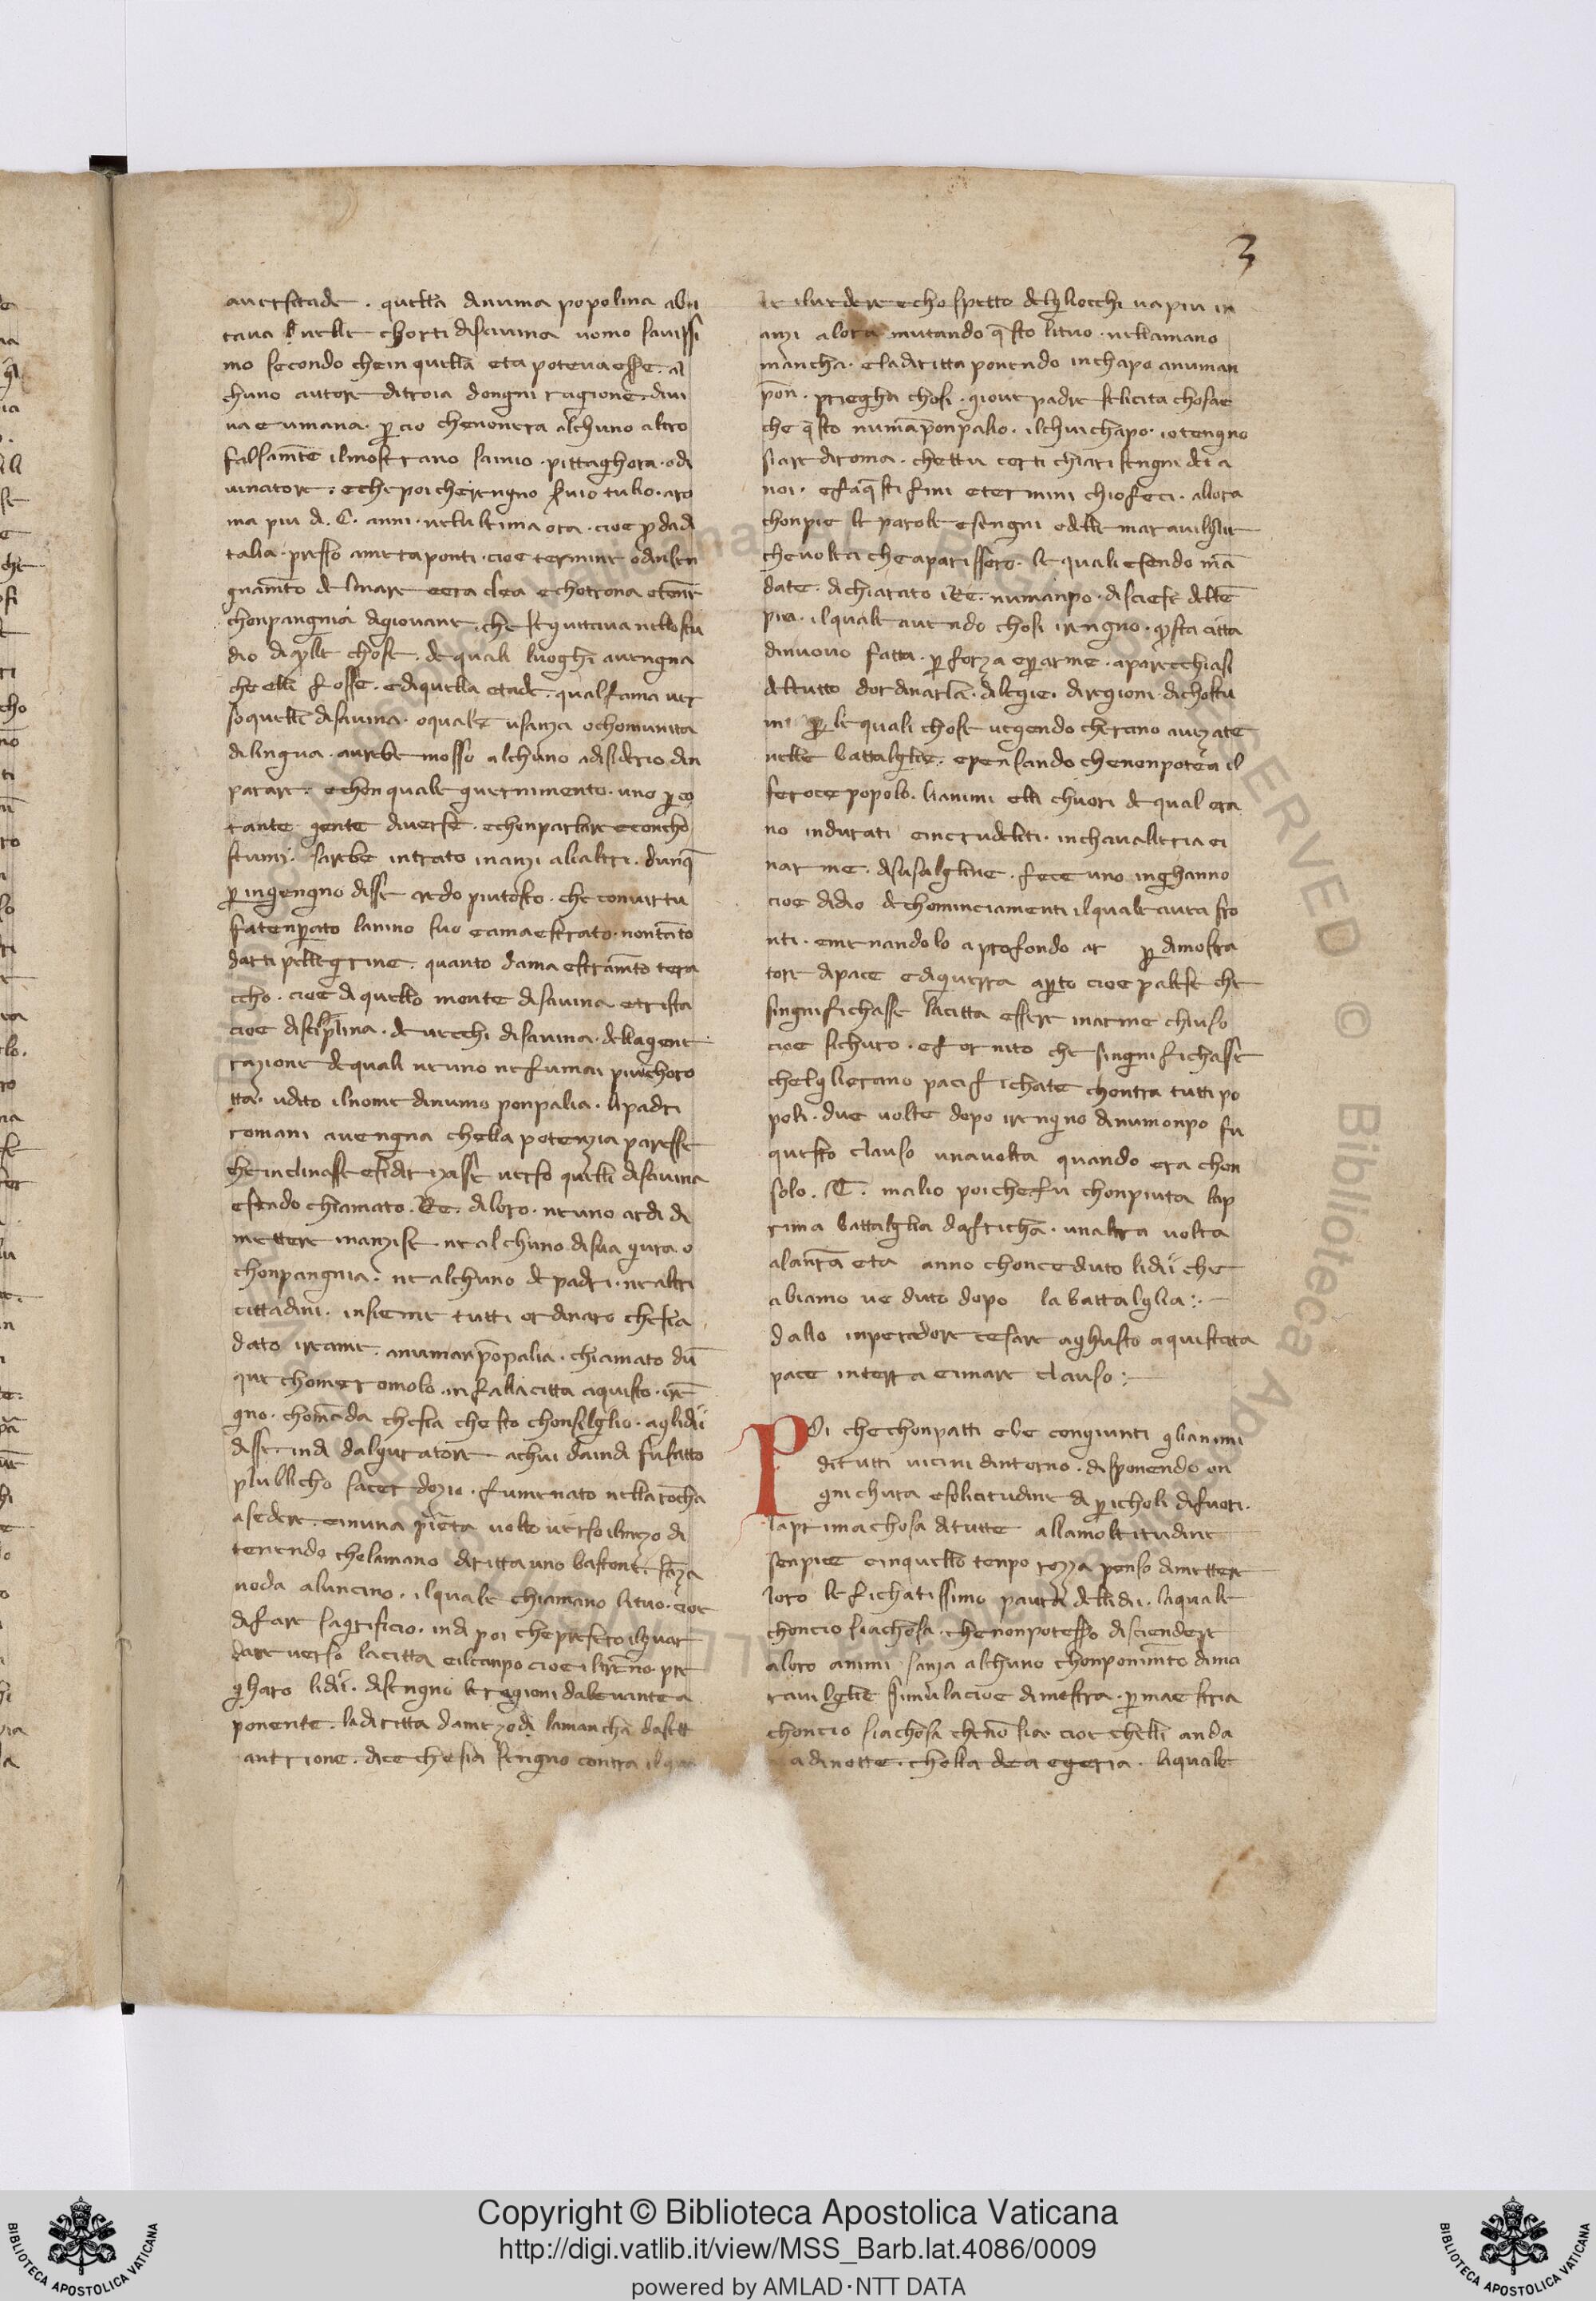 3
auersitade · quella dinuma popolina abi
taua nelle chorti disauina uomo sauissi
mo secondo che in quella eta poteua esse. al
chuno autore ditroia dongni ragione diui
na e umana · p cio chenonera alchuno altro
falsamte ilmostrano samio · pittaghora · odi
uinatore · echepoi cherengno seruio tulio · aro
ma piu di .C. anni · nelultima ora · cioe p dadi
talia · presso ametaponti · cioe termine
gnamto delmare eera clea echotrona etenne
chonpangnia digiouane · che seguitaua nello stu
dio di qlle chose · de quali luoghi auengna
che elli fosse · ediquella etade · qual fama uer
so quelli disauina · oquale usanza ochomunita
dilingua · aurebe mosso alchuno adisiderio din
parare · echon quale guernimento · uno p co
tante gente diuerse · echonparlare econcho
stumi · sarebe intrato inanzi alialtri · dunq
p ingengno disse credo piutosto · che conuirtu
fatenperato lanimo suo eamaestrato · nontato
darti pellegrine · quanto damaestramto tera
ccho · cioe di quello monte disauina etrista
cioe disciplina · deuecchi disauina · dellagene
razione dequali neuno nefumai piuchoro
tta · udito ilnome dinumo ponpalia · lipadri
romani auengna chella potenzia paresse
cheinclinasse esidirizasse uerso quelli disauina
esendo chiamato · Re · diloro · neuno ardi di
mettere inanzise · nealchuno disua gura · o
chonpangnia · nealchuno de padri · nealtri
cittadini · insieme tutti ordinaro chesia
dato ireame · anumanponpalia · chiamato du
que chome romolo · infallacitta aquisto · ire
gno · chomada chesia chesto chonsilglio · aglidii
disse · indi dalguratore achui daindi fufatto
plubblicho sacerdozio · fumenato nellarocha
asedere · einuna prieta uolto uerso ilmezo di
tenendo chelamano diritta uno bastone · saza
noda aluncino · ilquale chiamano lituo · cioe
difare sagrificio · indi poi che prese ilguar
dare uerso lacitta eilcanpo cioe ilterreno · pre
gharo lidii · disengno leregioni daleuante a
ponente · ladiritta damezodi lamancha dasett
antrione · dice chesia sengno contra ilqua
le iluedere echospetto delgliocchi uapiu in
anzi alora mutando qsto lituo · nellamano
mancha · eladiritta ponendo inchapo anuman
pon · priegha chosi · gioue padre selicita chosae
che qsto numaponpalio · ilchuichapo · iotengno
siare diroma · chettu certi chiari sengni dei a
noi · efa qsti fini etermini chiofeci · allora
chonpie le parole esengni edelle marauilglie
cheuolea cheaparissero · le quali esendo ma
date · dichiarato iRe · numanpo · disciese delte
pio · ilquale auendo chosi irengno · qsta citta
dinuouo fatta · p forza ep arme · aparecchiasi
deltutto dordinarla · dilegie · diregioni dichostu
mi p lequali chose uegendo cherano auezate
nelle battalglie · epensando chenonpotea il
feroce popolo · lianimi elli chuori de qual era
no indurati eincrudeliti · inchaualleria ei
narme · disusalgline · fece uno inghanno
cioe didio dechominciamenti ilquale auea fro
nti · emenandolo aprofondo ar p dimostra
tore dipace ediguerra apto cioe palese che
singnifichasse lacitta essere inarme chiuso
cioe sichuro · efornito che singnifichasse
chelglierano pacifichate chontra tutti po
poli · due uolte dopo irengno dinumonpo fu
questo clauso unauolta quando era chon
solo · T · malio poichefu chonpiuta lap
rima battalglia dafricha · unaltra uolta
alanra eta anno chonceduto lidii che
abiamo ueduto dopo la battalglia :·
dallo inperadore cesare aghusto aquistata
pace interra einmare clauso :·
POi chechonpatti ebe congiunti glianimi
ditutti uicini dintorno · disponendo on
gni chura esolicitudine di picholi difuori ·
laprimachosa ditutte allamoltitudine
senpice einquello tenpo rozza penso dimettere
loro leficatissimo paura dellidii · laquale
choncio siachosa · chenonpotesso disciendere
aloro animi sanza alchuno chonponimto dima
rauilglie simula cioe dimostra · p maestria
choncio siachosa cheno sia cioe chelli anda
a dinotte · chella dea egeria · laquale
Copyright © Biblioteca Apostolica Vaticana
http://digi.vatlib.it/view/MSS_Barb.lat.4086/0009
powered by AMLAD·NTT DATA